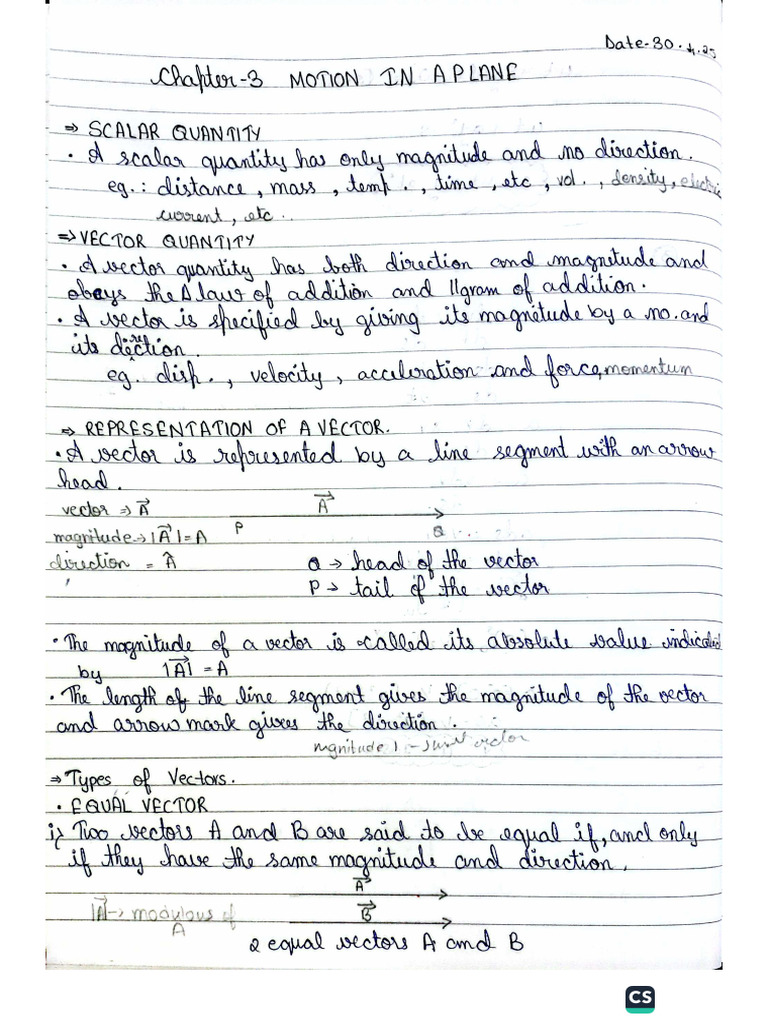 Date-30.4.25
Chapter-3 MOTION IN A PLANE
⇒ SCALAR QUANTITY
• A scalar quantity has only magnitude and no direction.
eg.: distance, mass, temp., time, etc, vol., density, electric
current, etc..
⇒ VECTOR QUANTITY
• A vector quantity has both direction and magnitude and
obeys the Δ law of addition and llgram of addition.
• A vector is specified by giving its magnitude by a no. and
its direction.
eg. disp., velocity, acceleration and force, momentum
⇒ REPRESENTATION OF A VECTOR.
• A vector is represented by a line segment with an arrow
head.
vector ⇒ A⃗
A⃗
P
Q
magnitude → |A⃗| = A
direction = Â
Q → head of the vector
P → tail of the vector
• The magnitude of a vector is called its absolute value indicated
by |A⃗| = A
• The length of the line segment gives the magnitude of the vector
and arrow mark gives the direction.
mgnitude 1 - vector
⇒ Types of Vectors.
• EQUAL VECTOR
i) Two vectors A and B are said to be equal if, and only
if they have the same magnitude and direction.
A⃗
|A⃗| → modulous of
A
B⃗
2 equal vectors A and B
CS